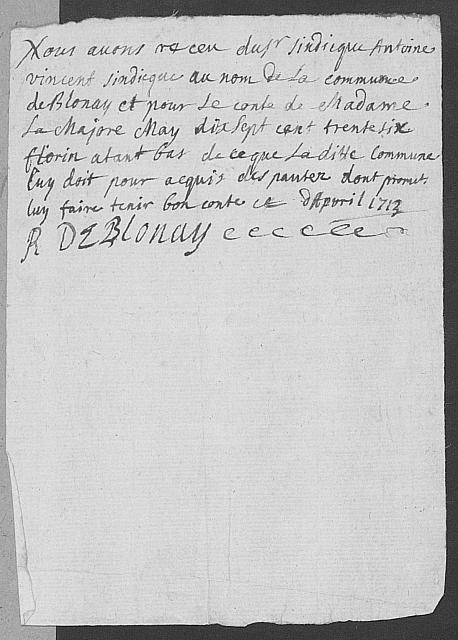 Nous avons receu du sr sindicque Antoine
vincent sindicque au nom de La commune
de Blonay et pour Le conte de Madame
La Majore May dix Sept cent trente six
florin atant bas de ce que La ditte Commune
Luy doit pour acquis des dont promet
luy faire tenir bon conte ce d'Apvril 1713
R DE BLonay